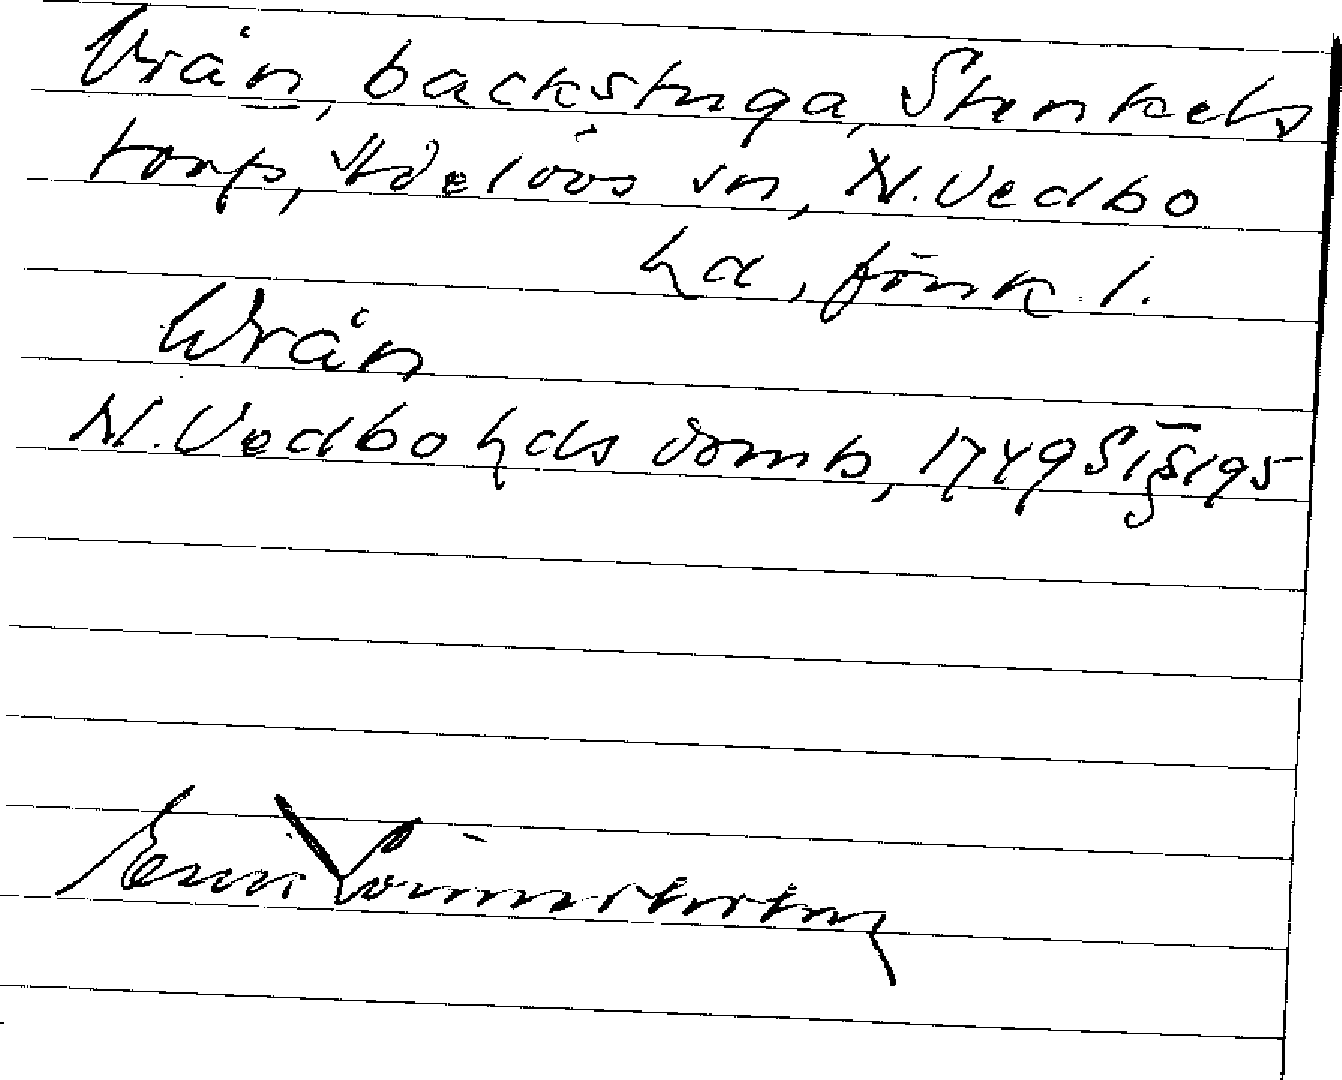 Vrån, backstuga, Stenkels
torp, Adelövs sn, N. Vedbo
hd, Jönk. l.
Wrån
N. Vedbo hds domb, 1749 § 195